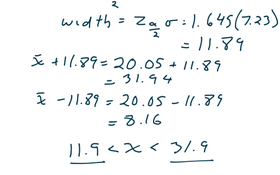 width² = Zα/2 σ = 1.645(7.23)
= 11.89
x̄ + 11.89 = 20.05 + 11.89
= 31.94
x̄ - 11.89 = 20.05 - 11.89
= 8.16
11.9 < x < 31.9